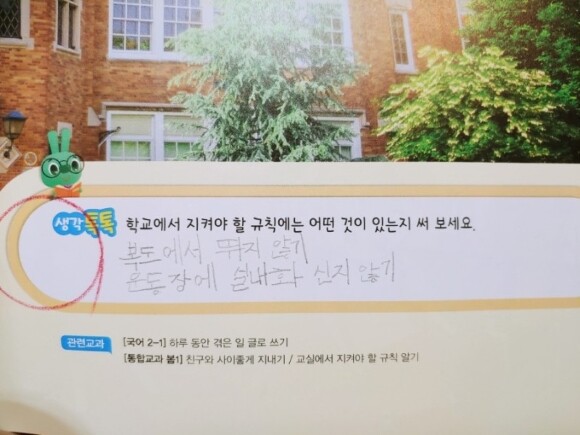 생각톡톡 학교에서 지켜야 할 규칙에는 어떤 것이 있는지 써 보세요.
복도에서 뛰지 않기
운동장에 실내화 신지 않기
관련교과 [국어 2-1] 하루 동안 겪은 일 글로 쓰기
[통합교과 봄1] 친구와 사이좋게 지내기 / 교실에서 지켜야 할 규칙 알기